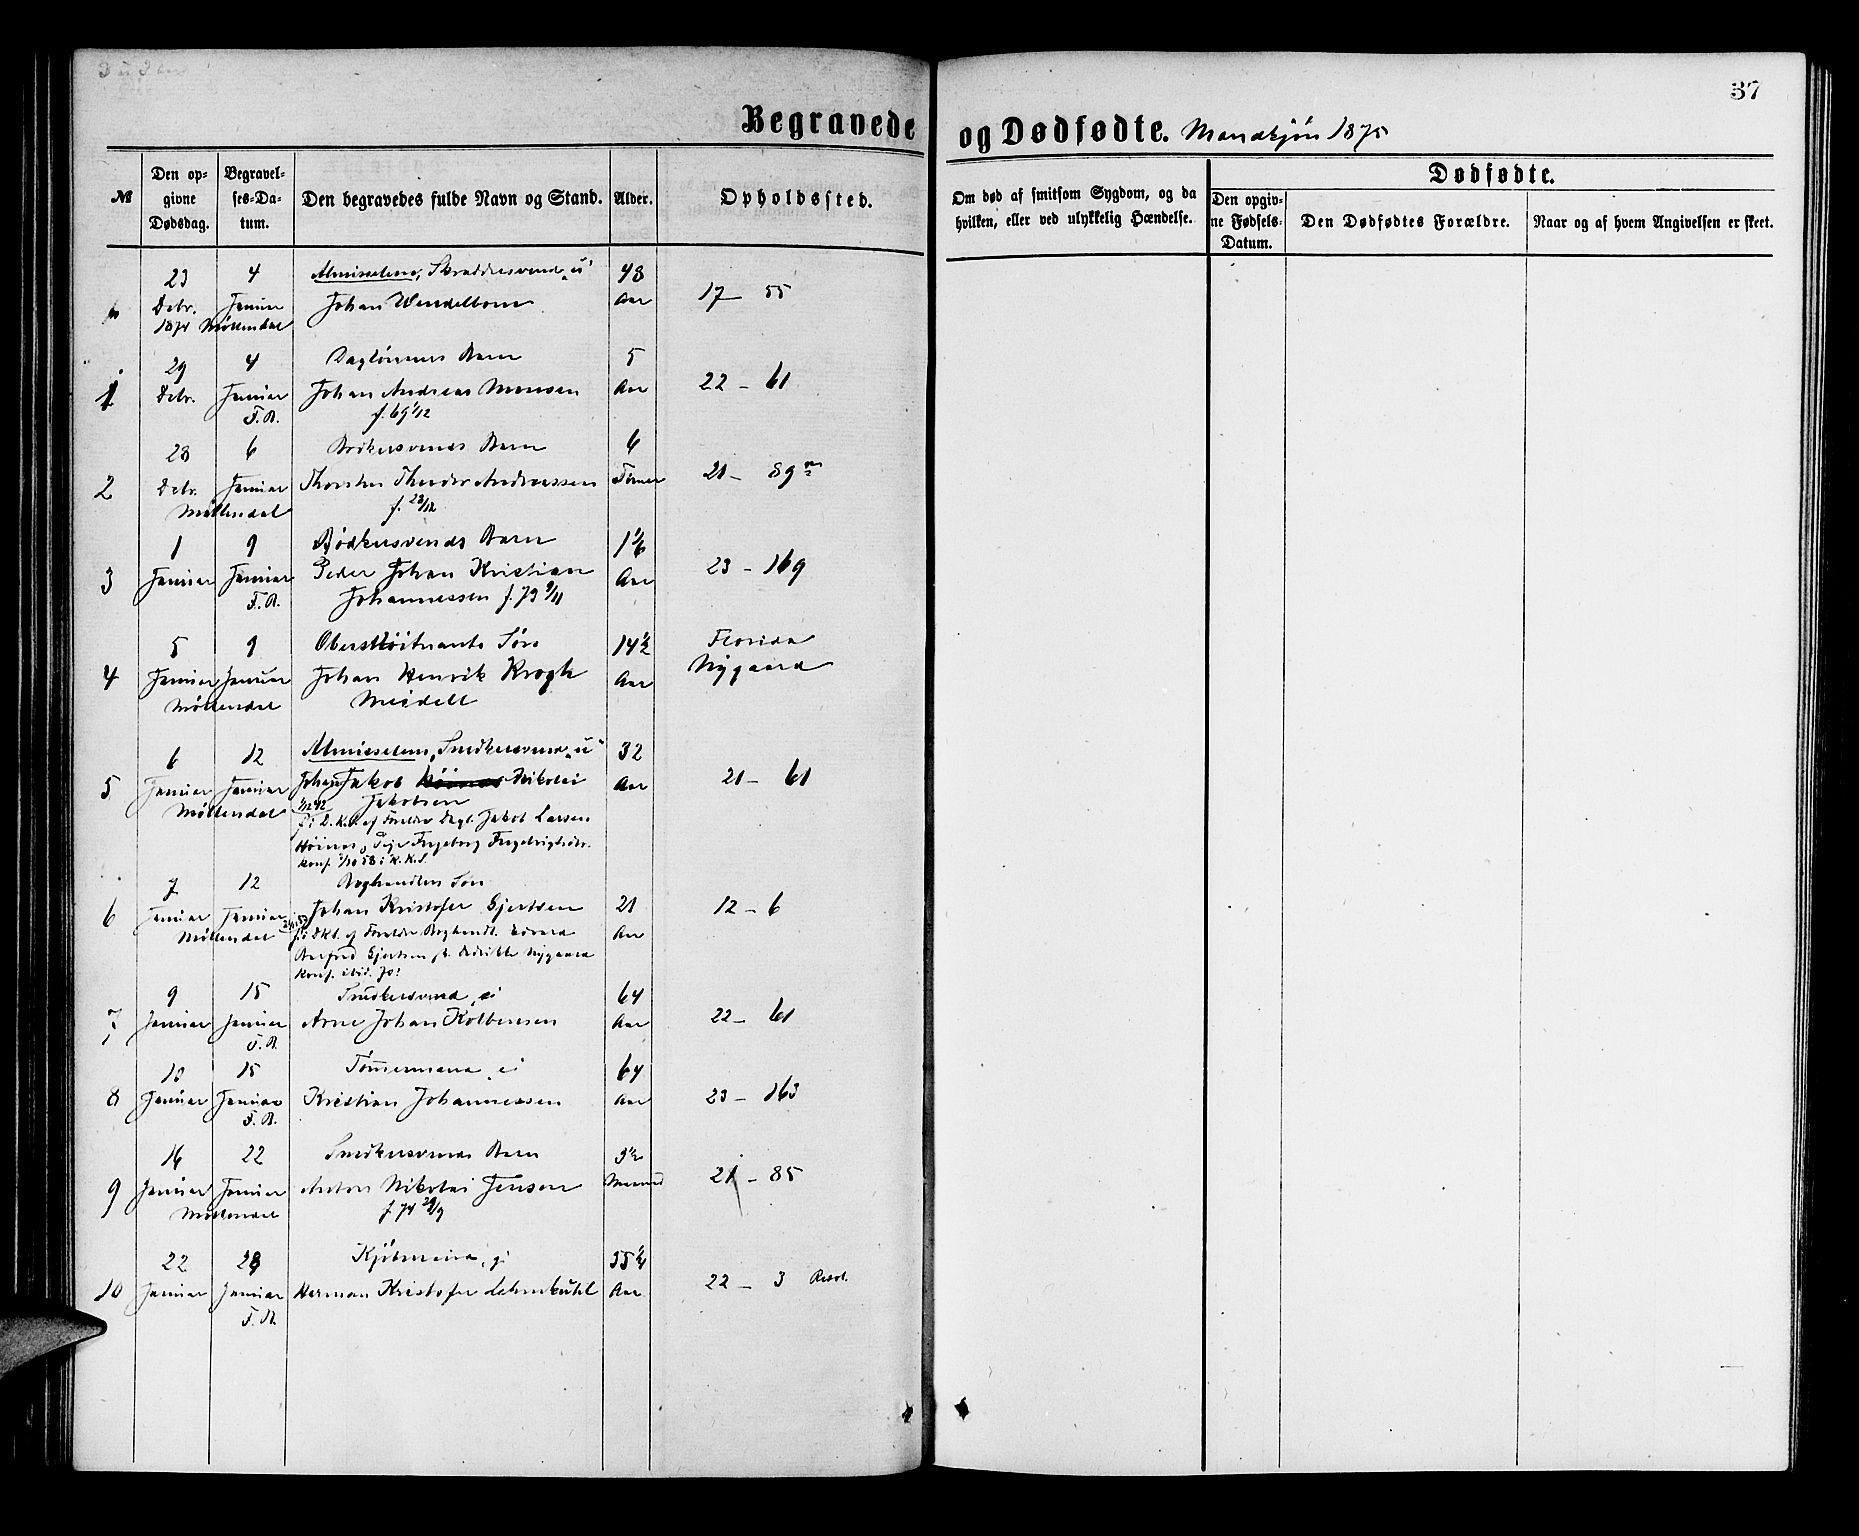 37
Begravede og Dødfødte. Mandkjön 1875
№
Den opgivne Dødsdag.
Begravelses-Datum.
Den begravedes fulde Navn og Stand.
Alder.
Opholdssted.
Om død af smitsom Sygdom, og da hvilken, eller ved ulykkelig Hændelse.
Dødfødte.
Den opgivne Fødsels-Datum.
Den Dødfødtes Forældre.
Naar og af hvem Angivelsen er skeet.
23 4 Almisselem, Skräddersvend, ü 48
Debr. Januar Johan Wendelbom Aar 17 – 55
1874 Möllendal
29 4 Daglönners Barn 5
1 Debr. Januar Johan Andreas Monsen Aar 22 – 61
F. R. f. 69 1/12
28 6 Barn 6
2 Debr. Januar Thorsten Theodor Andreassen Timer 21 – 89
Möllendal f. 28/12
1 9 Bödkersvends Barn 1 1/6
3 Januar Januar Peder Johan Kristian Aar 23 – 169
F. R. Johannessen f. 73 9/11
5 9 Oberstlöitnants Sön 14 1/2 Florida
4 Januar Januar Johan Henrik Krogh Aar Nygaard
Möllendal Meidell
6 12 Almisselem, Snedkersvend, ü 32
5 Januar Januar Johan Jakob Nikolai Aar 21 – 61
Möllendal 1/12 42 Jakobsen
f. i D.K.S. af Forældre Dagl. Jakob Larsen
Höines og Ingeborg
konf. 1/10 58 i K.K.S.
7 12 Boghandlers Sön
6 Januar Januar Johan Kristofer Gjertsen 21 12 – 6
Möllendal f. i Dkk. af Forældre Boghandl. Edvard Aar
Gjertsen Nygaard
konf. ibid.
9 15 Snedkersvend, ei 64
7 Januar Januar Arne Johan Kolbensen Aar 22 – 61
F. R.
10 15 Tömmermand, ei 64
8 Januar Januar Kristian Johannessen Aar 23 – 163
F. R.
16 22 Snedkersvends Barn 3 1/2
9 Januar Januar Anton Nikolai Jensen Maaned 21 – 85
Möllendal f. 74 29/9
22 28 Kjöbmand, g 55 1/4
10 Januar Januar Herman Kristofer Lehmkuhl Aar 22 – 3
F. R.